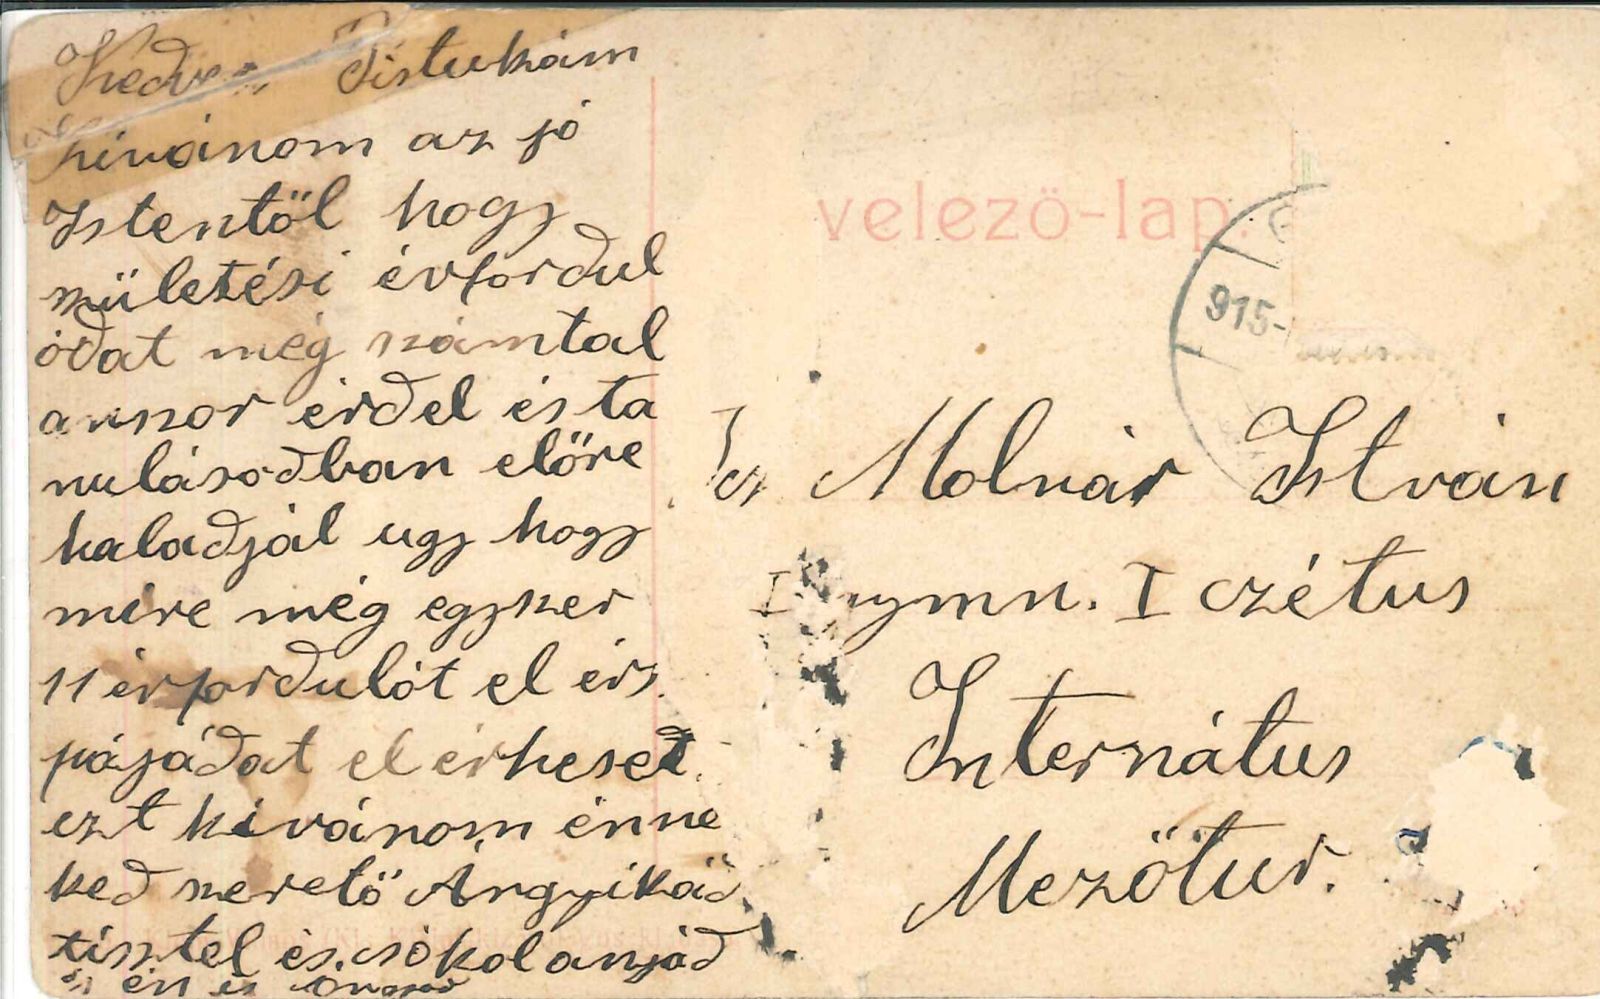 Kedves Pistukám
kívánom az jó
Istentöl hogy
születési évfordul
ódat még számtal
anszor érdel és ta
nulásodban elöre
haladjál ugy hogy
mire még egyszer
11 évfordulót el érsz
pájádat el érhesed
ezt kivánom énne
ked szeretö Ángyikád
tisztel és csókol anyád
én is
velezö-lap.
915-
Molnár István
I gymn. I czétus
Internátus
Mezötur.